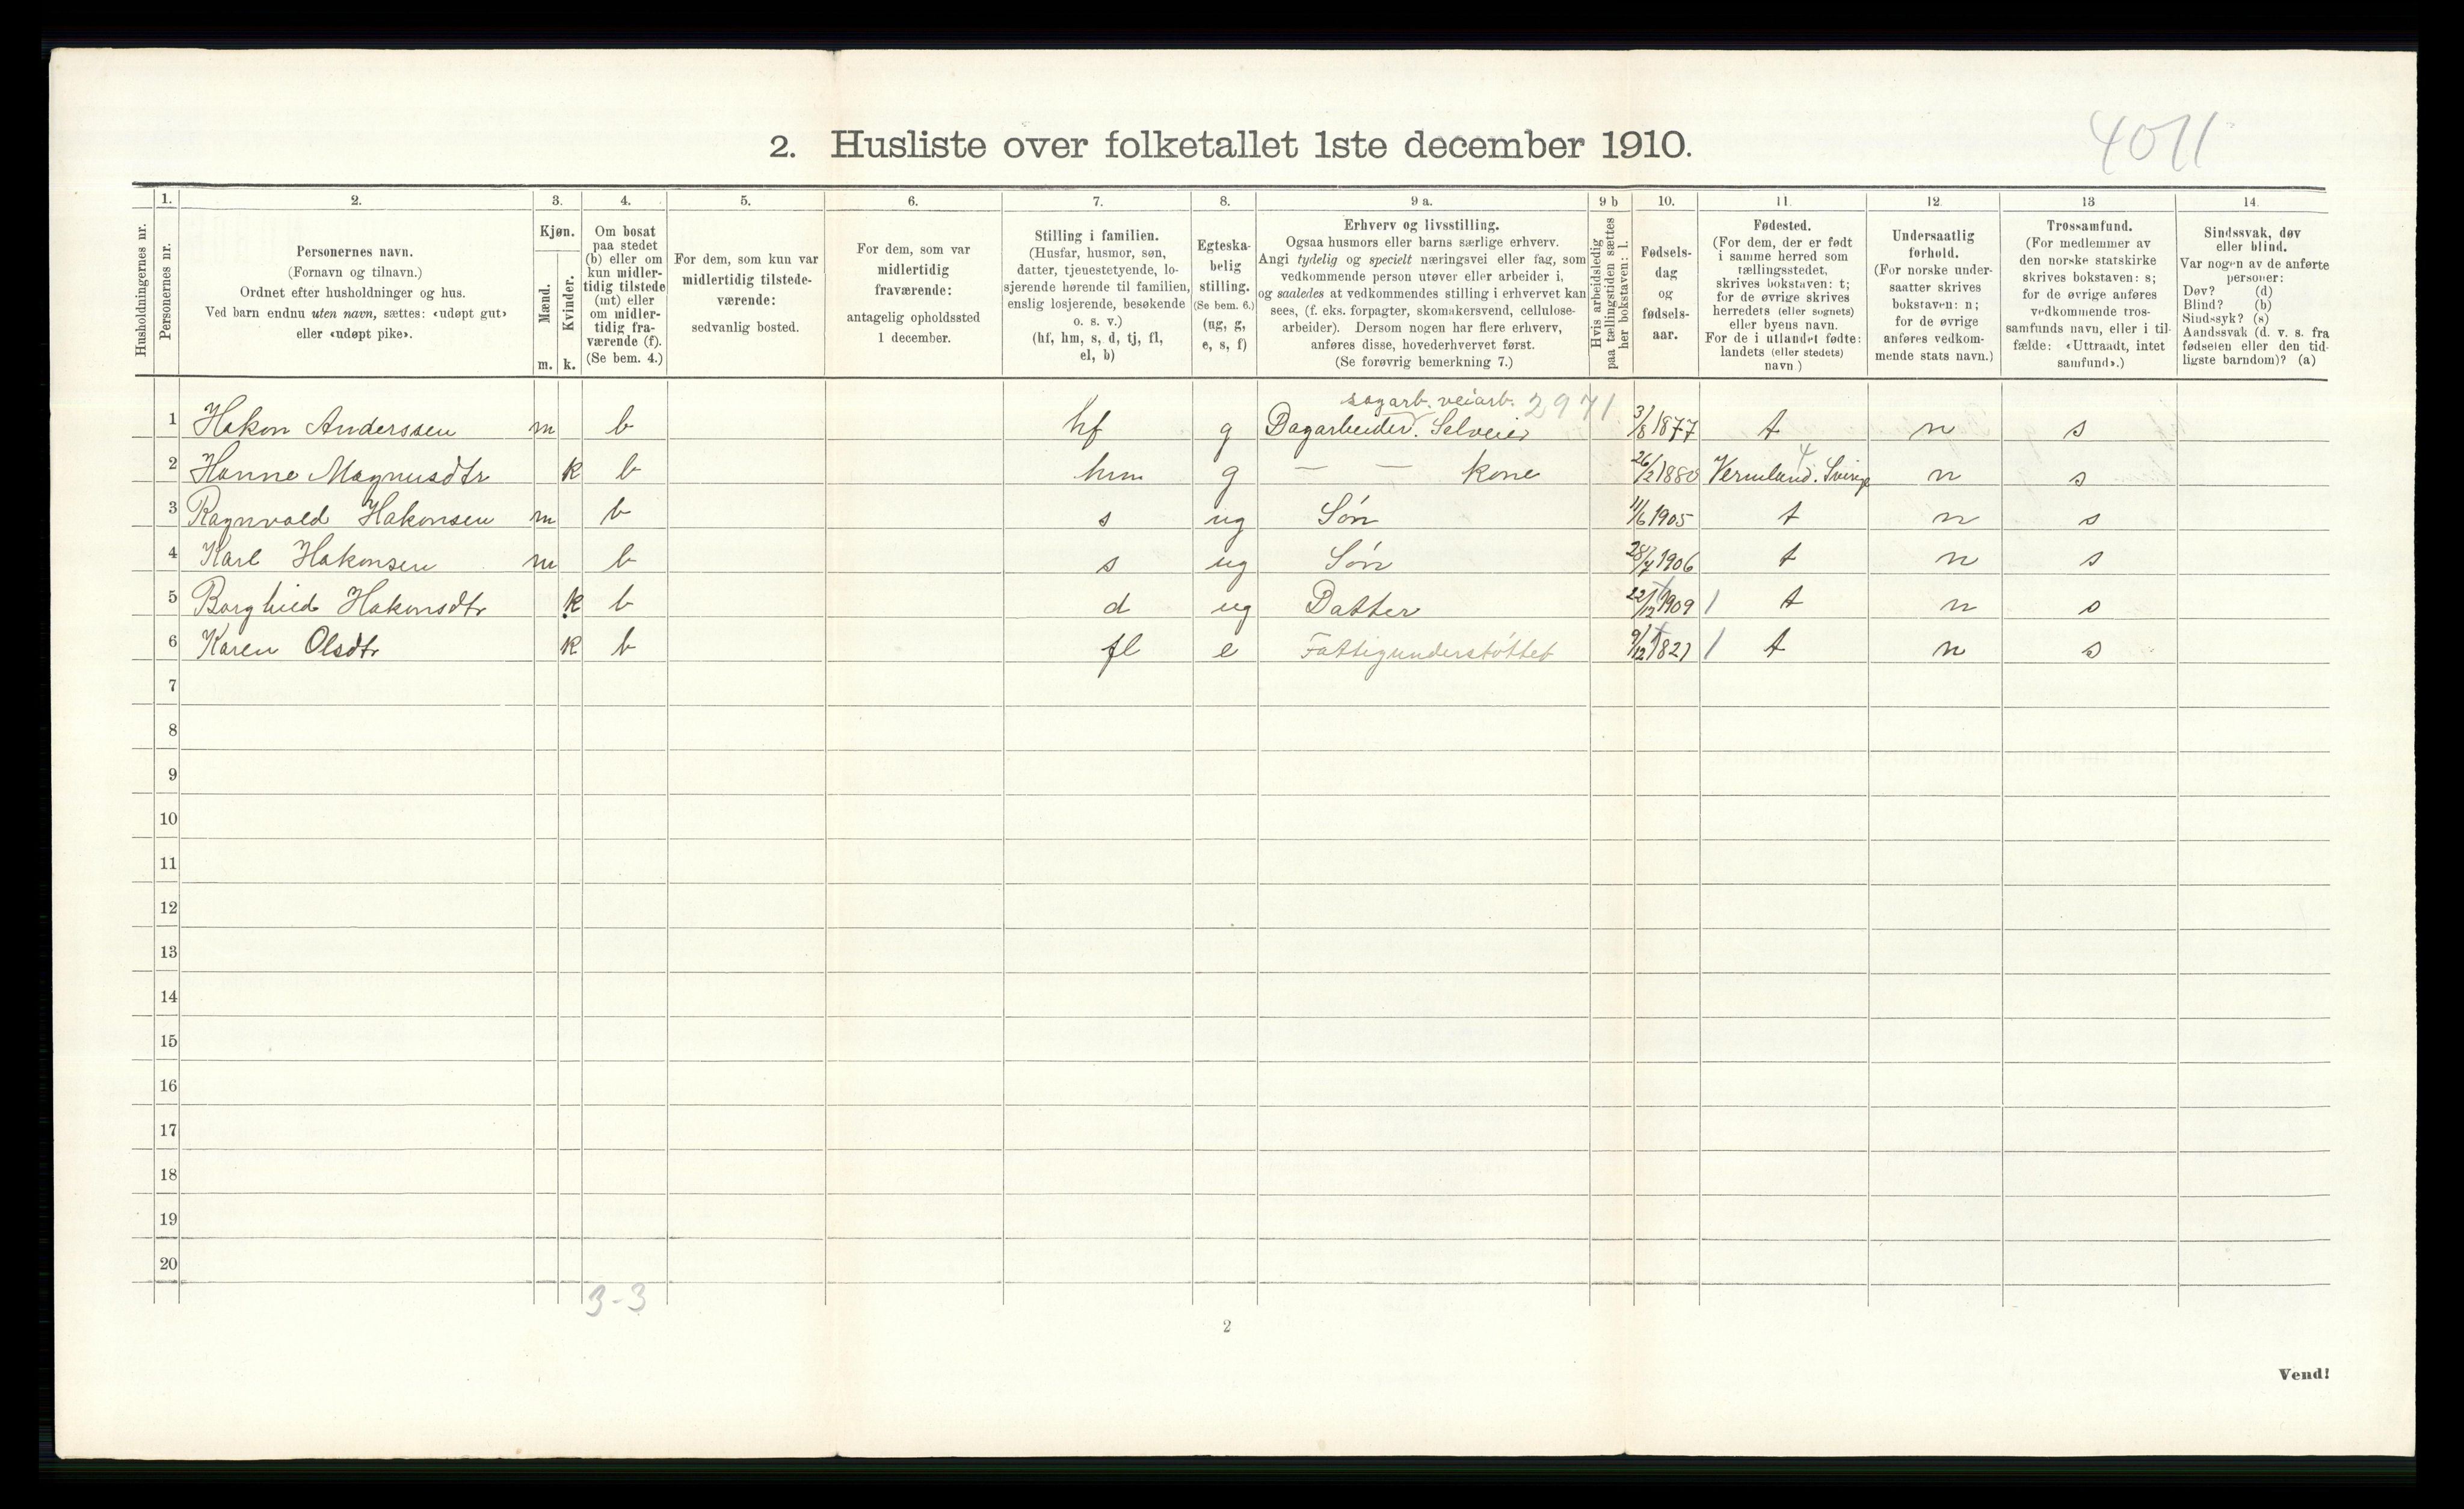 4011
2. Husliste over folketallet 1ste december 1910.
1. 2. 3. 4. 5. 6. 7. 8. 9 a. 9 b 10. 11. 12. 13 14.
Husholdningernes nr.
Personernes nr.
Personernes navn.
(Fornavn og tilnavn.)
Ordnet efter husholdninger og hus.
Ved barn endnu uten navn, sættes: «udøpt gut»
eller «udøpt pike».
Kjøn.
Mænd.
Kvinder.
m. k.
Om bosat
paa stedet
(b) eller om
kun midler-
tidig tilstede
(mt) eller
om midler-
tidig fra-
værende (f).
(Se bem. 4.)
For dem, som kun var
midlertidig tilstede-
værende:
sedvanlig bosted.
For dem, som var
midlertidig
fraværende:
antagelig opholdssted
1 december.
Stilling i familien.
(Husfar, husmor, søn,
datter, tjenestetyende, lo-
sjerende hørende til familien,
enslig losjerende, besøkende
o. s. v.)
(hf, hm, s, d, tj, fl,
el, b)
Egteska-
belig
stilling.
(Se bem. 6.)
(ug, g,
e, s, f)
Erhverv og livsstilling.
Ogsaa husmors eller barns særlige erhverv.
Angi tydelig og specielt næringsvei eller fag, som
vedkommende person utøver eller arbeider i,
og saaledes at vedkommendes stilling i erhvervet kan
sees, (f. eks. forpagter, skomakersvend, cellulose-
arbeider). Dersom nogen har flere erhverv,
anføres disse, hovederhvervet først.
(Se forøvrig bemerkning 7.)
Hvis arbeidsledig
paa tællingstiden sættes
her bokstaven: l.
Fødsels-
dag
og
fødsels-
aar.
Fødested.
(For dem, der er født
i samme herred som
tællingsstedet,
skrives bokstaven: t;
for de øvrige skrives
herredets (eller sognets)
eller byens navn.
For de i utlandet fødte:
landets (eller stedets)
navn)
Undersaatlig
forhold.
(For norske under-
saatter skrives
bokstaven: n;
for de øvrige
anføres vedkom-
mende stats navn.)
Trossamfund.
(For medlemmer av
den norske statskirke
skrives bokstaven: s;
for de øvrige anføres
vedkommende tros-
samfunds navn, eller i til-
fælde: «Uttraadt, intet
samfund».)
Sindssvak, døv
eller blind.
Var nogen av de anførte
personer:
Døv? (d)
Blind? (b)
Sindssyk? (s)
Aandssvak (d. v. s. fra
fødselen eller den tid-
ligste barndom)? (a)
sagarb. veiarb. 2971
1 Hakon Anderssen m b hf g Dagarbeider. Selveier 3/8 1877 t n s
4
2 Hanne Magnusdtr k b hm g — — kone 26/2 1880 Vermland. Sverige n s
3 Ragnvald Hakonsen m b s ug Søn 11/6 1905 t n s
4 Karl Hakonsen m b s ug Søn 28/7 1906 t n s
5 Borghild Hakonsdtr k b d ug Datter 22/12 1909 1 t n s
6 Karen Olsdtr k b fl e Fattigunderstøttet 9/12 1821 1 t n s
7
8
9
10
11
12
13
14
15
16
17
18
19
20
3-3
2
Vend!